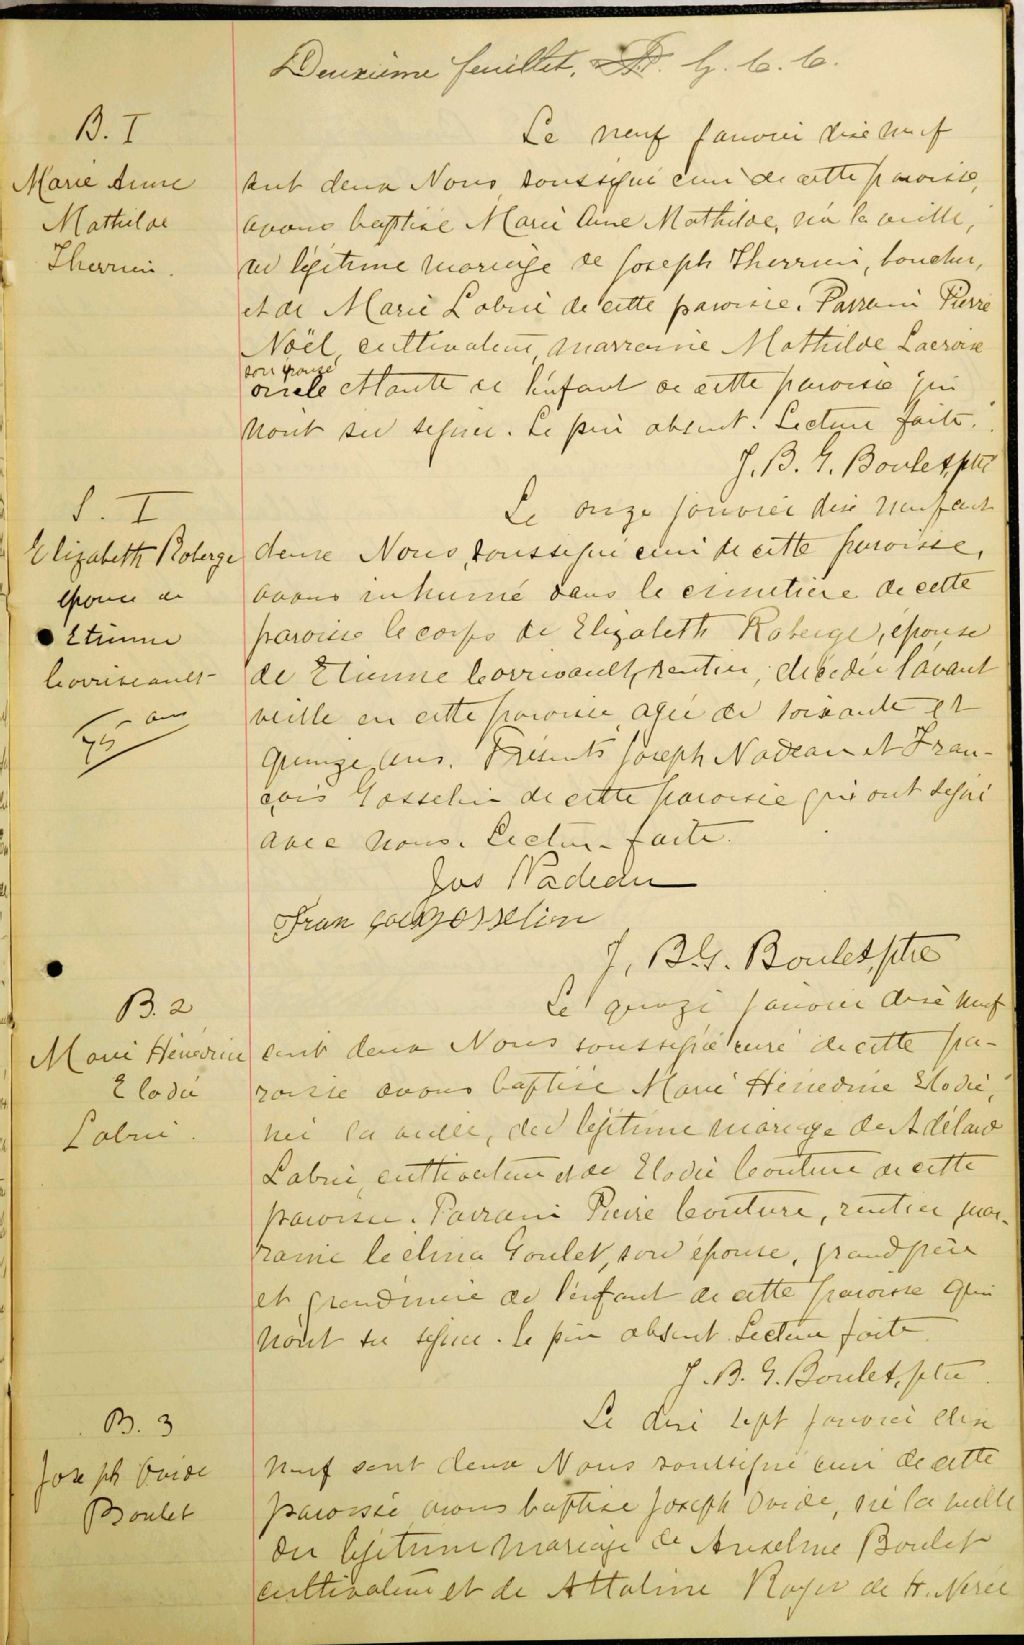 Deuxième feuillet. G. C. C.
B. I
Marie Anne
Mathilde
Therrien.
Le neuf janvier dix neuf
cent deux Nous soussigné curé de cette paroisse,
avons baptisé Marie Anne Mathilde, née la veille,
du légitime mariage de Joseph Therrien, boucher,
et de Marie Labrie de cette paroisse. Parrain Pierre
Noël, cultivateur, marraine Mathilde Lacroix
son épouse
oncle et tante de l'enfant de cette paroisse qui
n'ont su signer. Le père absent. Lecture faite.
J. B. G. Boulet, ptre
S. I
Elizabeth Roberge
épouse de
Etienne
Corriveault
75 ans
Le onze janvier dix neuf cent
deux Nous, soussigné curé de cette paroisse,
avons inhumé dans le cimetière de cette
paroisse le corps de Elizabeth Roberge, épouse
de Etienne Corrivault, rentier, décédée l'avant
veille en cette paroisse agée de soixante et
quinze ans. Présents Joseph Nadeau et Fran-
çois Gosselin de cette paroisse qui ont signé
avec nous. Lecture faite.
Jos Nadeau
Fran çois gosselin
J. B. G. Boulet, ptre
B. 2
Marie Hénédine
Elodie
Labrie.
Le quinze janvier dix neuf
cent deux Nous soussigné curé de cette pa-
roisse avons baptisé Marie Hénédine Elodie,
née la veille, du légitime mariage de Adélard
Labrie, cultivateur et de Elodie Couture de cette
paroisse. Parrain Pierre Couture, rentier mar-
raine Célina Goulet, son épouse, grand père
et grand'mère de l'enfant de cette paroisse qui
n'ont su signer. Le père absent. Lecture faite.
J. B. G. Boulet, ptre.
B. 3
Joseph Ovide
Boulet
Le dix sept janvier dix
neuf cent deux Nous soussigné curé de cette
paroisse avons baptisé Joseph Ovide, né la veille
du légitime mariage de Anselme Boulet
cultivateur et de Attaline Royer de St. Nérée